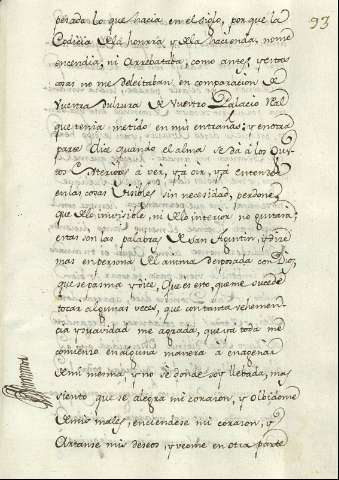 93
pesada lo que hacia en el siglo, por que la
Codicia de la honrra y de la hacienda, nome
encendia, ni Arrebataba, como antes, y estas
cosas no me deleitaban en comparacion de
Vuestra dulzura de Vuestro Palacio Real
que tenia metido en mis entrañas; y en otra
parte Dice quando el alma se dá á los Gus
tos Exteriores à ver, yà oir, yà entender
en las cosas Visibles sin necesidad, perdone,
que de lo invisible, ni de lo interior no gustará;
estas son las palabras de san Agustin, y dize
mas en persona de Anima desposada con Dios,
que se pasma y dice, Que es esto, que me sucede
tocar algunas veces, que con tanta vehemen
cia y suavidad me agrada, que yá toda me
comienzo en alguna manera à enagenar
de mi misma, y no se donde soy llebada, mas
siento que se alegra mi corazon, y Olbidome
de mis males, enciendese mi corazon, y
Artanse mis deseos, y veome en otra parte